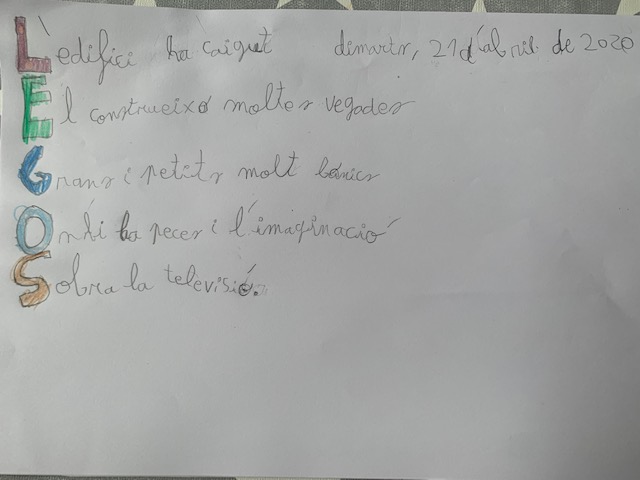 L'edifici ha caigut dimarts, 21 d'abril de 2020
El construeixo moltes vegades
Grans i petits molt bònics
On hi ha peces i l'imaginació
Sobra la televisió.